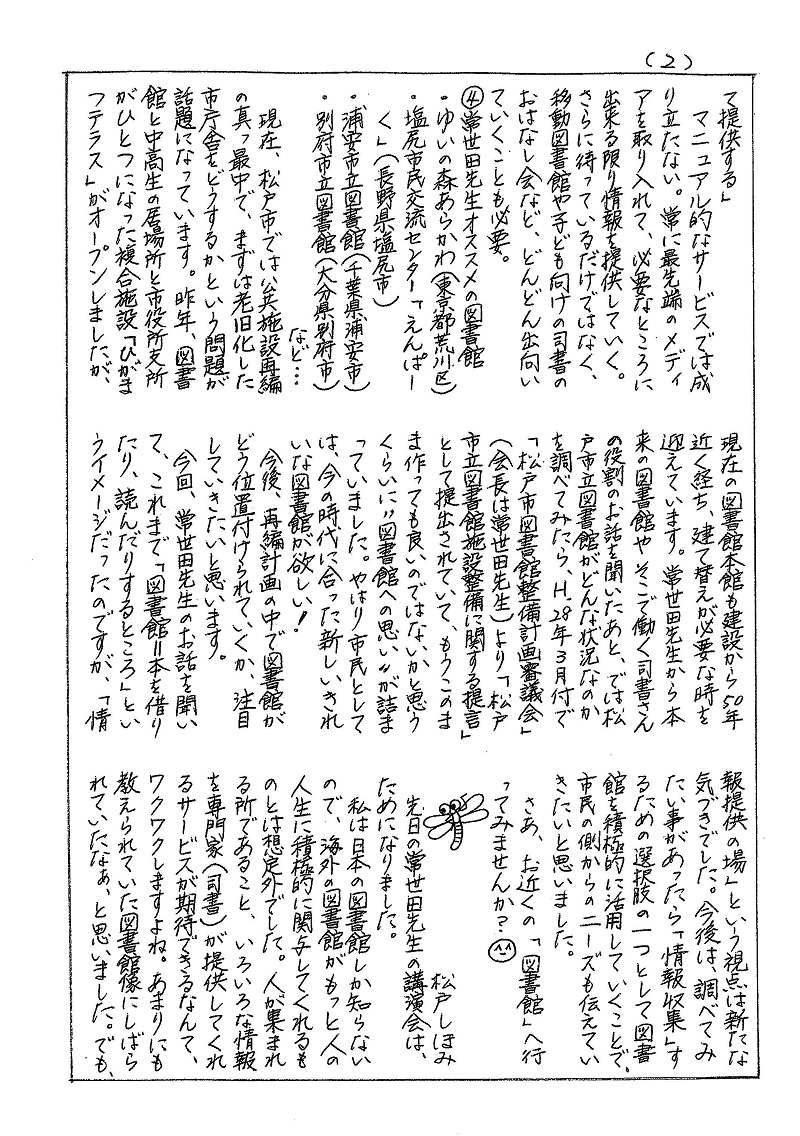 (2)
て提供する」
マニュアル的なサービスでは成
り立たない。常に最先端のメディ
アを取り入れて、必要なところに
出来る限り情報を提供していく。
さらに待っているだけではなく、
移動図書館や子ども向けの司書の
おはなし会など、どんどん出向い
ていくことも必要。
④常世田先生オススメの図書館
・ゆいの森あらかわ(東京都荒川区)
・塩尻市民交流センター「えんぱー
く」(長野県塩尻市)
・浦安市立図書館(千葉県浦安市)
・別府市立図書館(大分県別府市)
など…
現在、松戸市では公共施設再編
の真っ最中で、まずは老旧化した
市庁舎をどうするかという問題が
話題になっています。昨年、図書
館と中高生の居場所と市役所支所
がひとつになった複合施設「ひがま
つテラス」がオープンしましたが、
現在の図書館本館も建設から50年
近く経ち、建て替えが必要な時を
迎えています。常世田先生から本
来の図書館やそこで働く司書さん
の役割のお話を聞いたあと、では松
戸市立図書館がどんな状況なのか
を調べてみたら、H.28年3月付で
「松戸市図書館整備計画審議会」
(会長は常世田先生)より「松戸
市立図書館施設整備に関する提言」
として提出されていて、もうこのま
ま作っても良いのではないかと思う
くらいに〝図書館への思い〟が詰ま
っていました。やはり市民として
は、今の時代に合った新しいきれ
いな図書館が欲しい!
今後、再編計画の中で図書館が
どう位置付けられていくか、注目
していきたいと思います。
今回、常世田先生のお話を聞い
て、これまで「図書館=本を借り
たり、読んだりするところ」とい
うイメージだったのですが、「情
報提供の場」という視点は新たな
気づきでした。今後は、調べてみ
たい事があったら「情報収集」す
るための選択肢の一つとして図書
館を積極的に活用していくことで、
市民の側からのニーズも伝えてい
きたいと思いました。
さあ、お近くの「図書館」へ行
ってみませんか?
松戸しほみ
先日の常世田先生の講演会は、
ためになりました。
私は日本の図書館しか知らない
ので、海外の図書館がもっと人の
人生に積極的に関与してくれるも
のとは想定外でした。人が集まれ
る所であること、いろいろな情報
を専門家(司書)が提供してくれ
るサービスが期待できるなんて、
ワクワクしますよね。あまりにも
教えられていた図書館像にしばら
れていたなぁ、と思いました。でも、